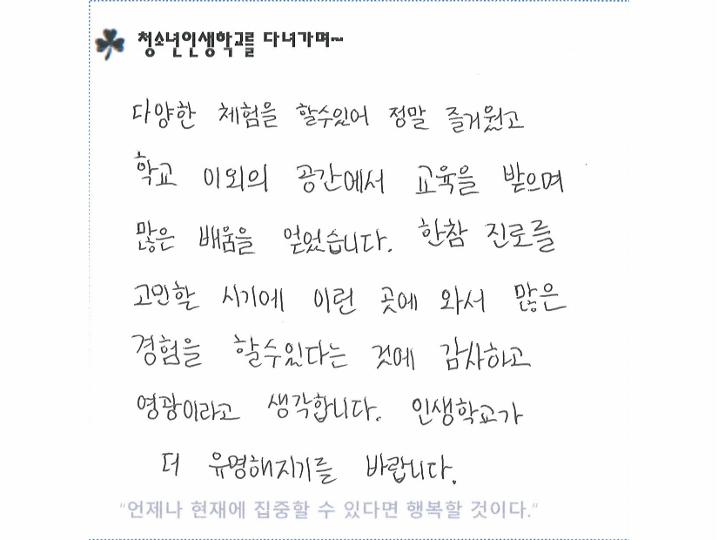 청소년인생학교를 다녀가며~
다양한 체험을 할수있어 정말 즐거웠고
학교 이외의 공간에서 교육을 받으며
많은 배움을 얻었습니다. 한참 진로를
고민할 시기에 이런 곳에 와서 많은
경험을 할수있다는 것에 감사하고
영광이라고 생각합니다. 인생학교가
더 유명해지기를 바랍니다.
"언제나 현재에 집중할 수 있다면 행복할 것이다."